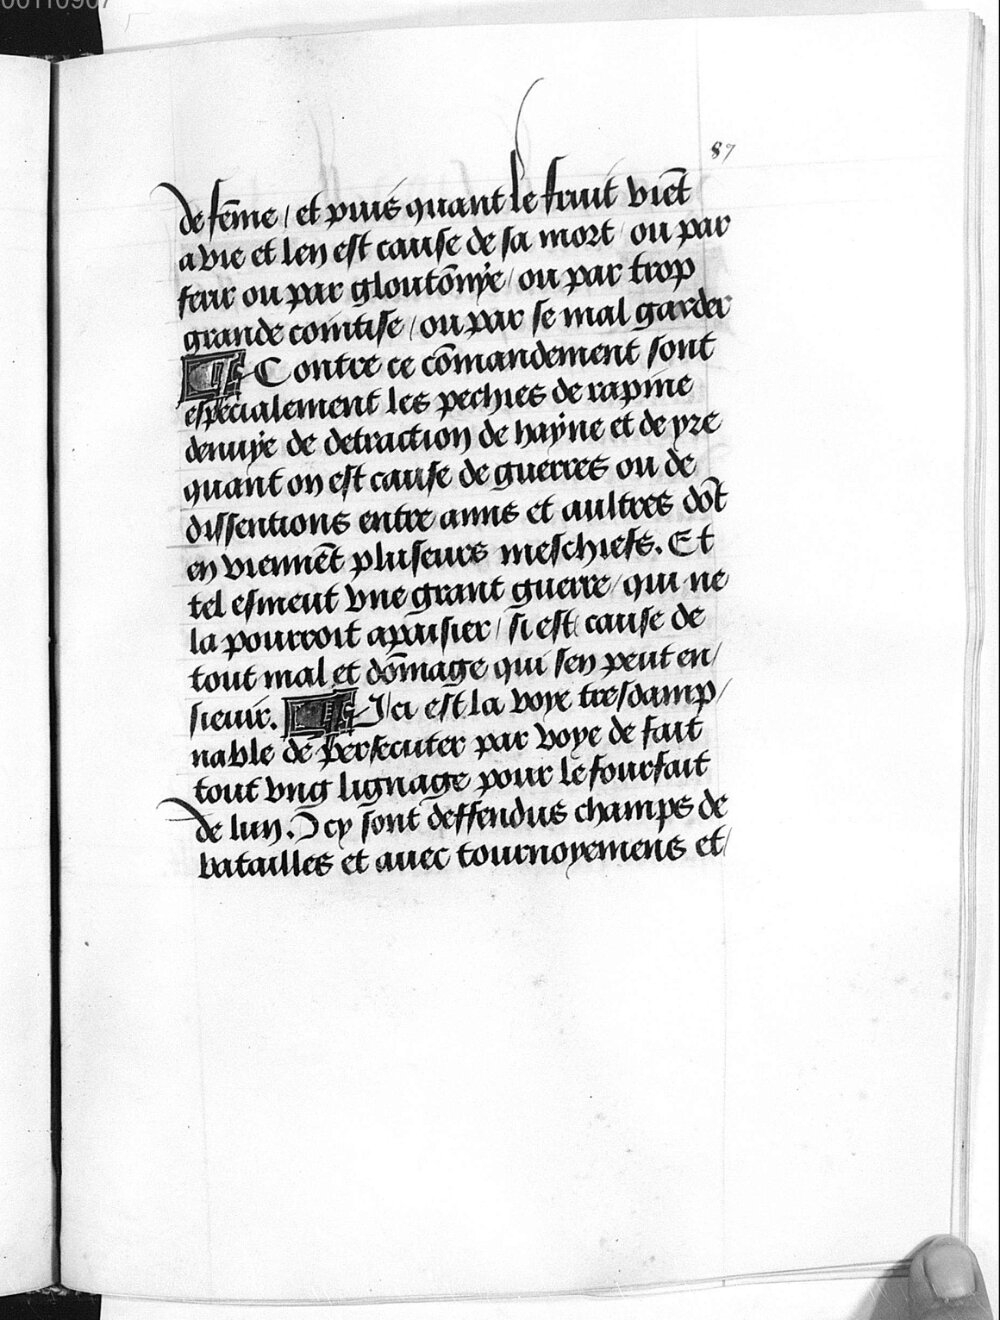 00110907
87
de fēme / et puis quant le fruit viēt
a vie et len est cause de sa mort / ou par
ferir ou par gloutōnye / ou par trop
grande cointise / ou par se mal garder
Contre ce cōmandement sont
especialement les pechies de rapine
denuye de detraction de hayne et de yre
quant on est cause de guerres ou de
dissentions entre amis et aultres dōt
en viennēt pluseurs meschiefs. Et
tel esmeut vne grant guerre / qui ne
la pourroit apaisier / si est cause de
tout mal et dōmage qui sen peut en/
sieuir. Ici est la voye tresdamp/
nable de persecuter par voye de fait
tout vng lignage pour le fourfait
de lun. Icy sont deffendus champs de
batailles et auec tournoyemens et/